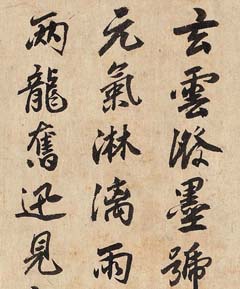 玄雲潑墨號
元氣淋漓雨
兩龍奮迅見